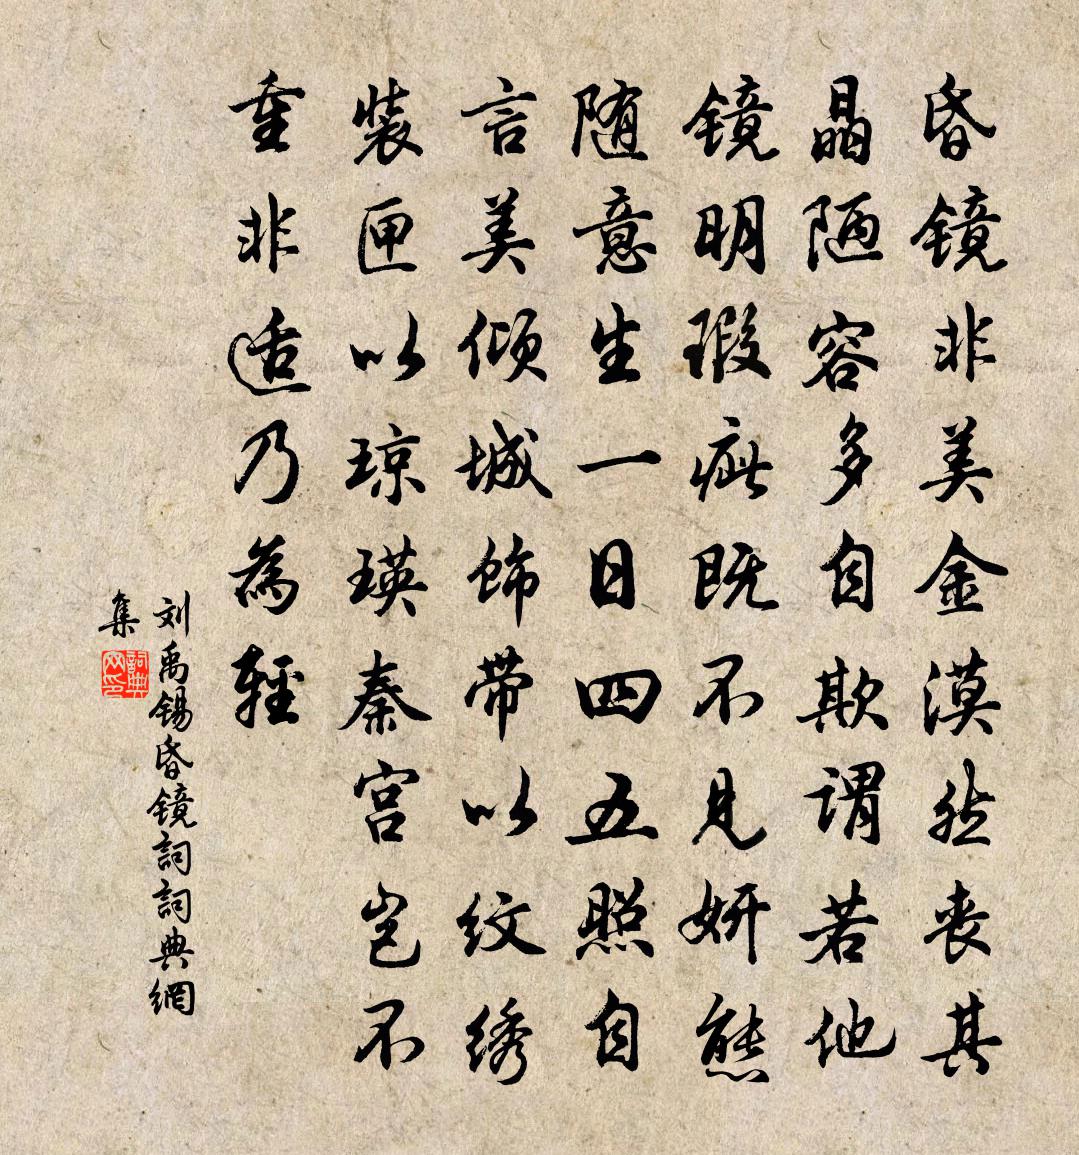 昏镜非美金漠然丧其
晶陋容多自欺谓若他
镜明瑕疵既不见妍態
随意生一日四五照自
言美倾城饰带以纹绣
装匣以琼瑛秦宫岂不
重非适乃為輕
刘禹锡昏镜詞詞典網
集
詞典网印